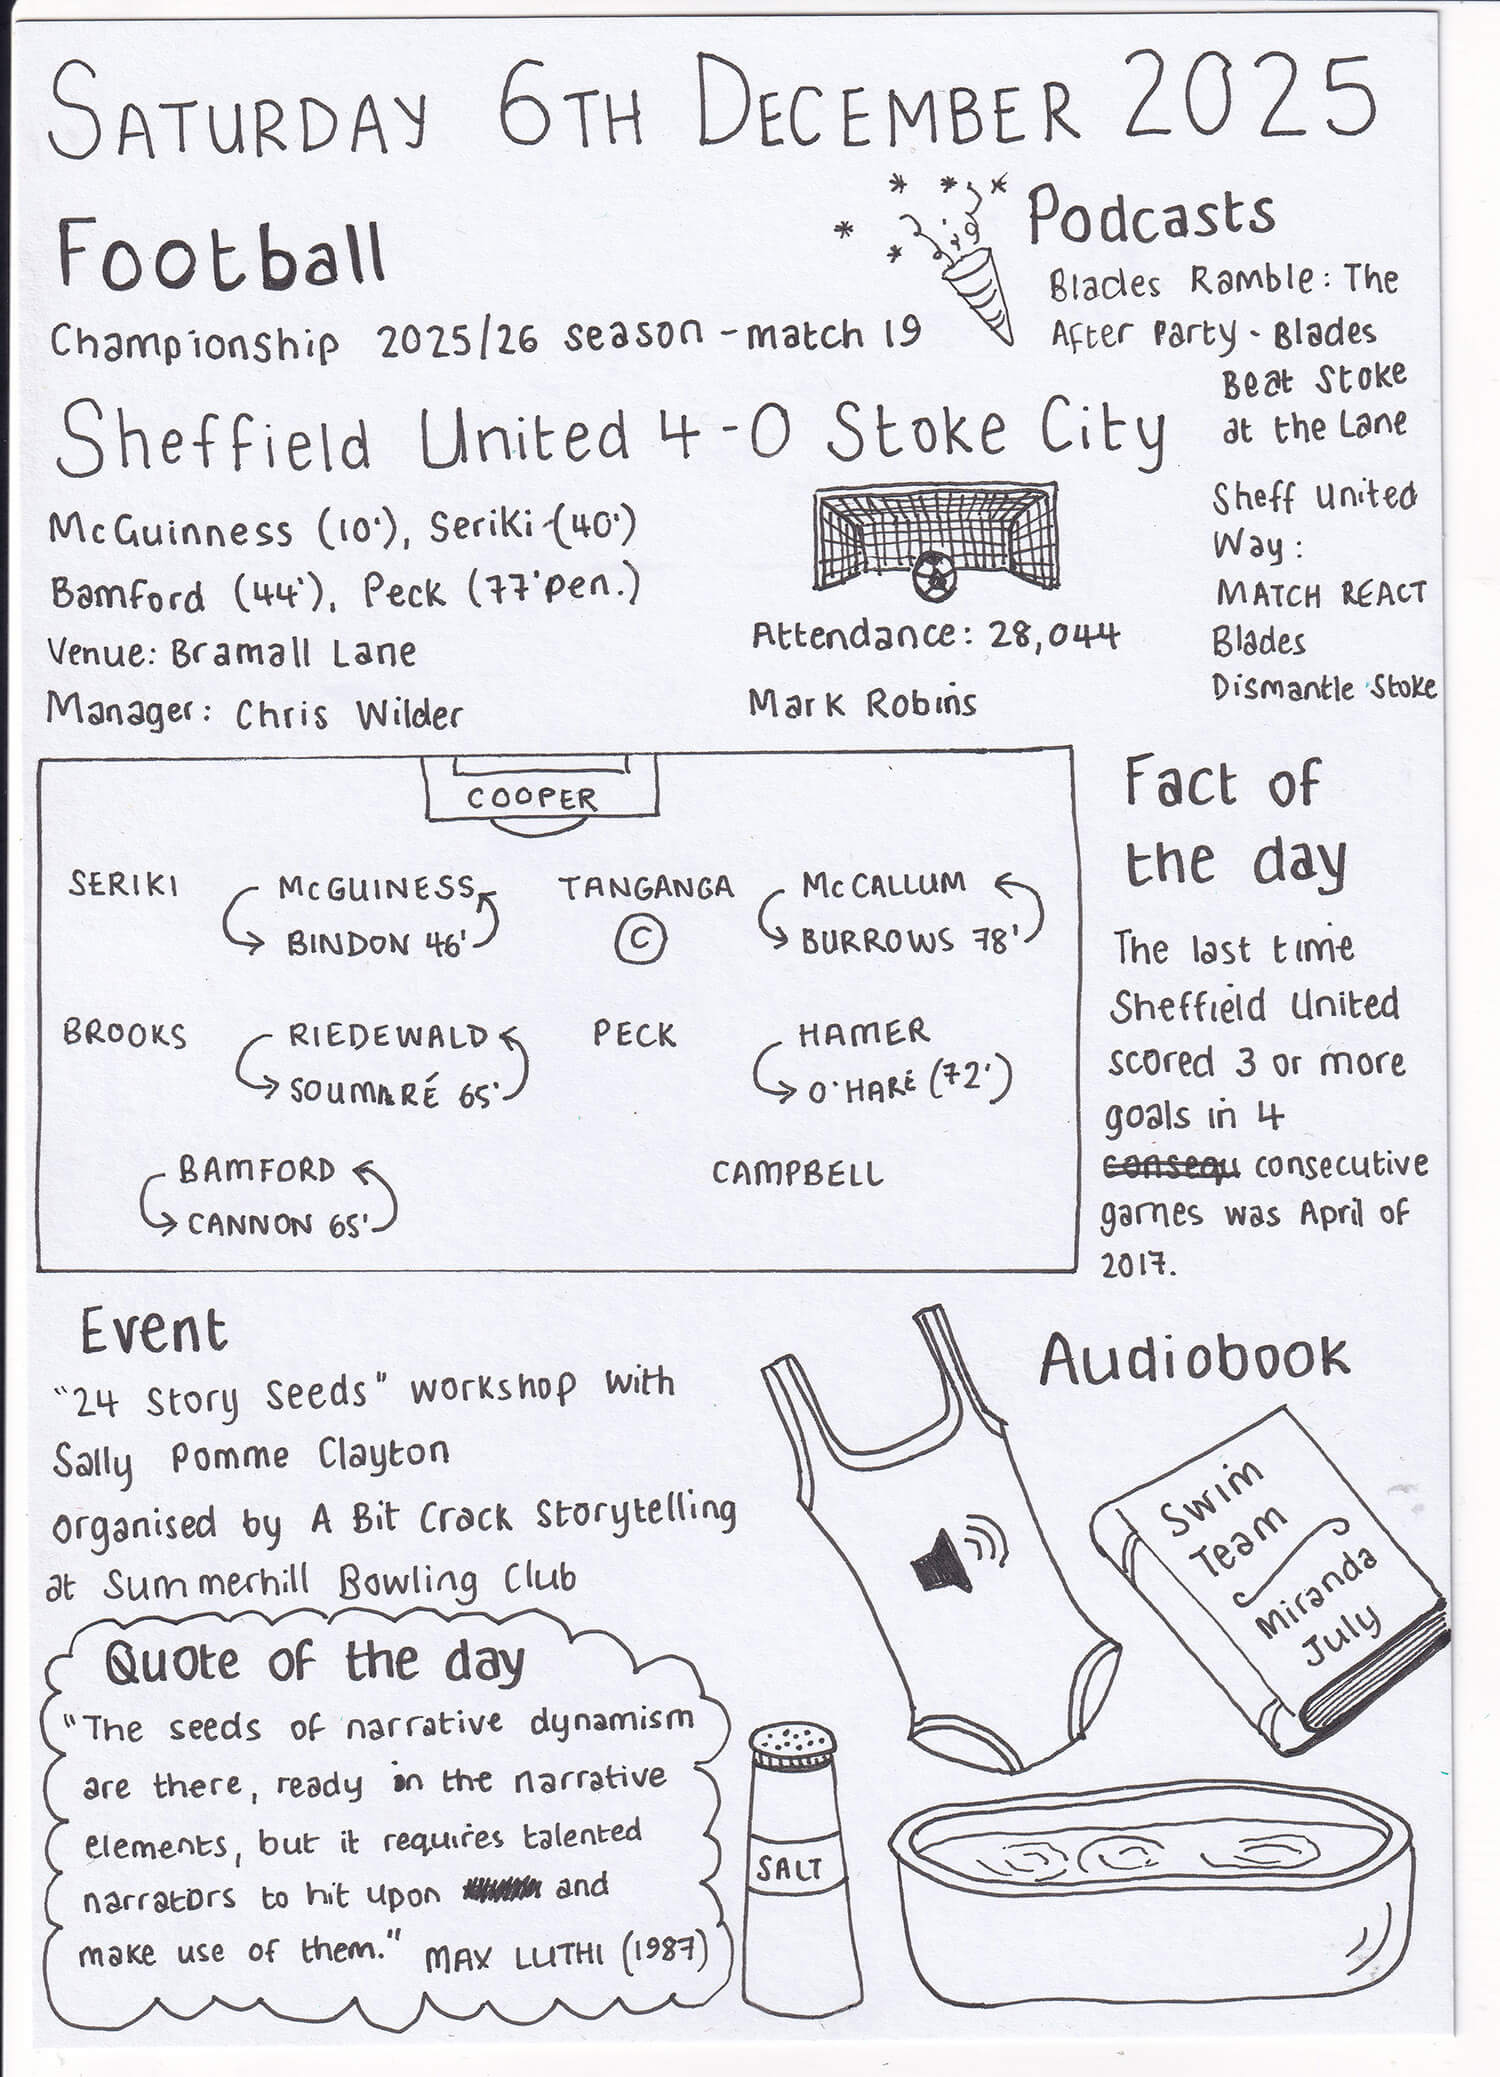 SATURDAY 6TH DECEMBER 2025
Football
Championship 2025/26 season - match 19
Sheffield United 4-0 Stoke City
McGuinness (10'), Seriki (40')
Bamford (44'), Peck (77'pen.)
Venue: Bramall Lane
Manager: Chris Wilder
Attendance: 28,044
Mark Robins
Podcasts
Blades Ramble: The
After Party - Blades
Beat Stoke
at the Lane
Sheff United
Way:
MATCH REACT
Blades
Dismantle Stoke
COOPER
SERIKI McGUINESS TANGANGA McCALLUM
BINDON 46' C BURROWS 78'
BROOKS RIEDEWALD PECK HAMER
SOUMARÉ 65' O'HARE (72')
BAMFORD CAMPBELL
CANNON 65'
Fact of
the day
The last time
Sheffield United
scored 3 or more
goals in 4
consequ consecutive
games was April of
2017.
Event
"24 Story Seeds" workshop with
Sally Pomme Clayton
organised by A Bit Crack Storytelling
at Summerhill Bowling Club
Audiobook
Swim
Team
Miranda
July
Quote of the day
"The seeds of narrative dynamism
are there, ready in the narrative
elements, but it requires talented
narrators to hit upon and
make use of them." MAX LUTHI (1987)
SALT